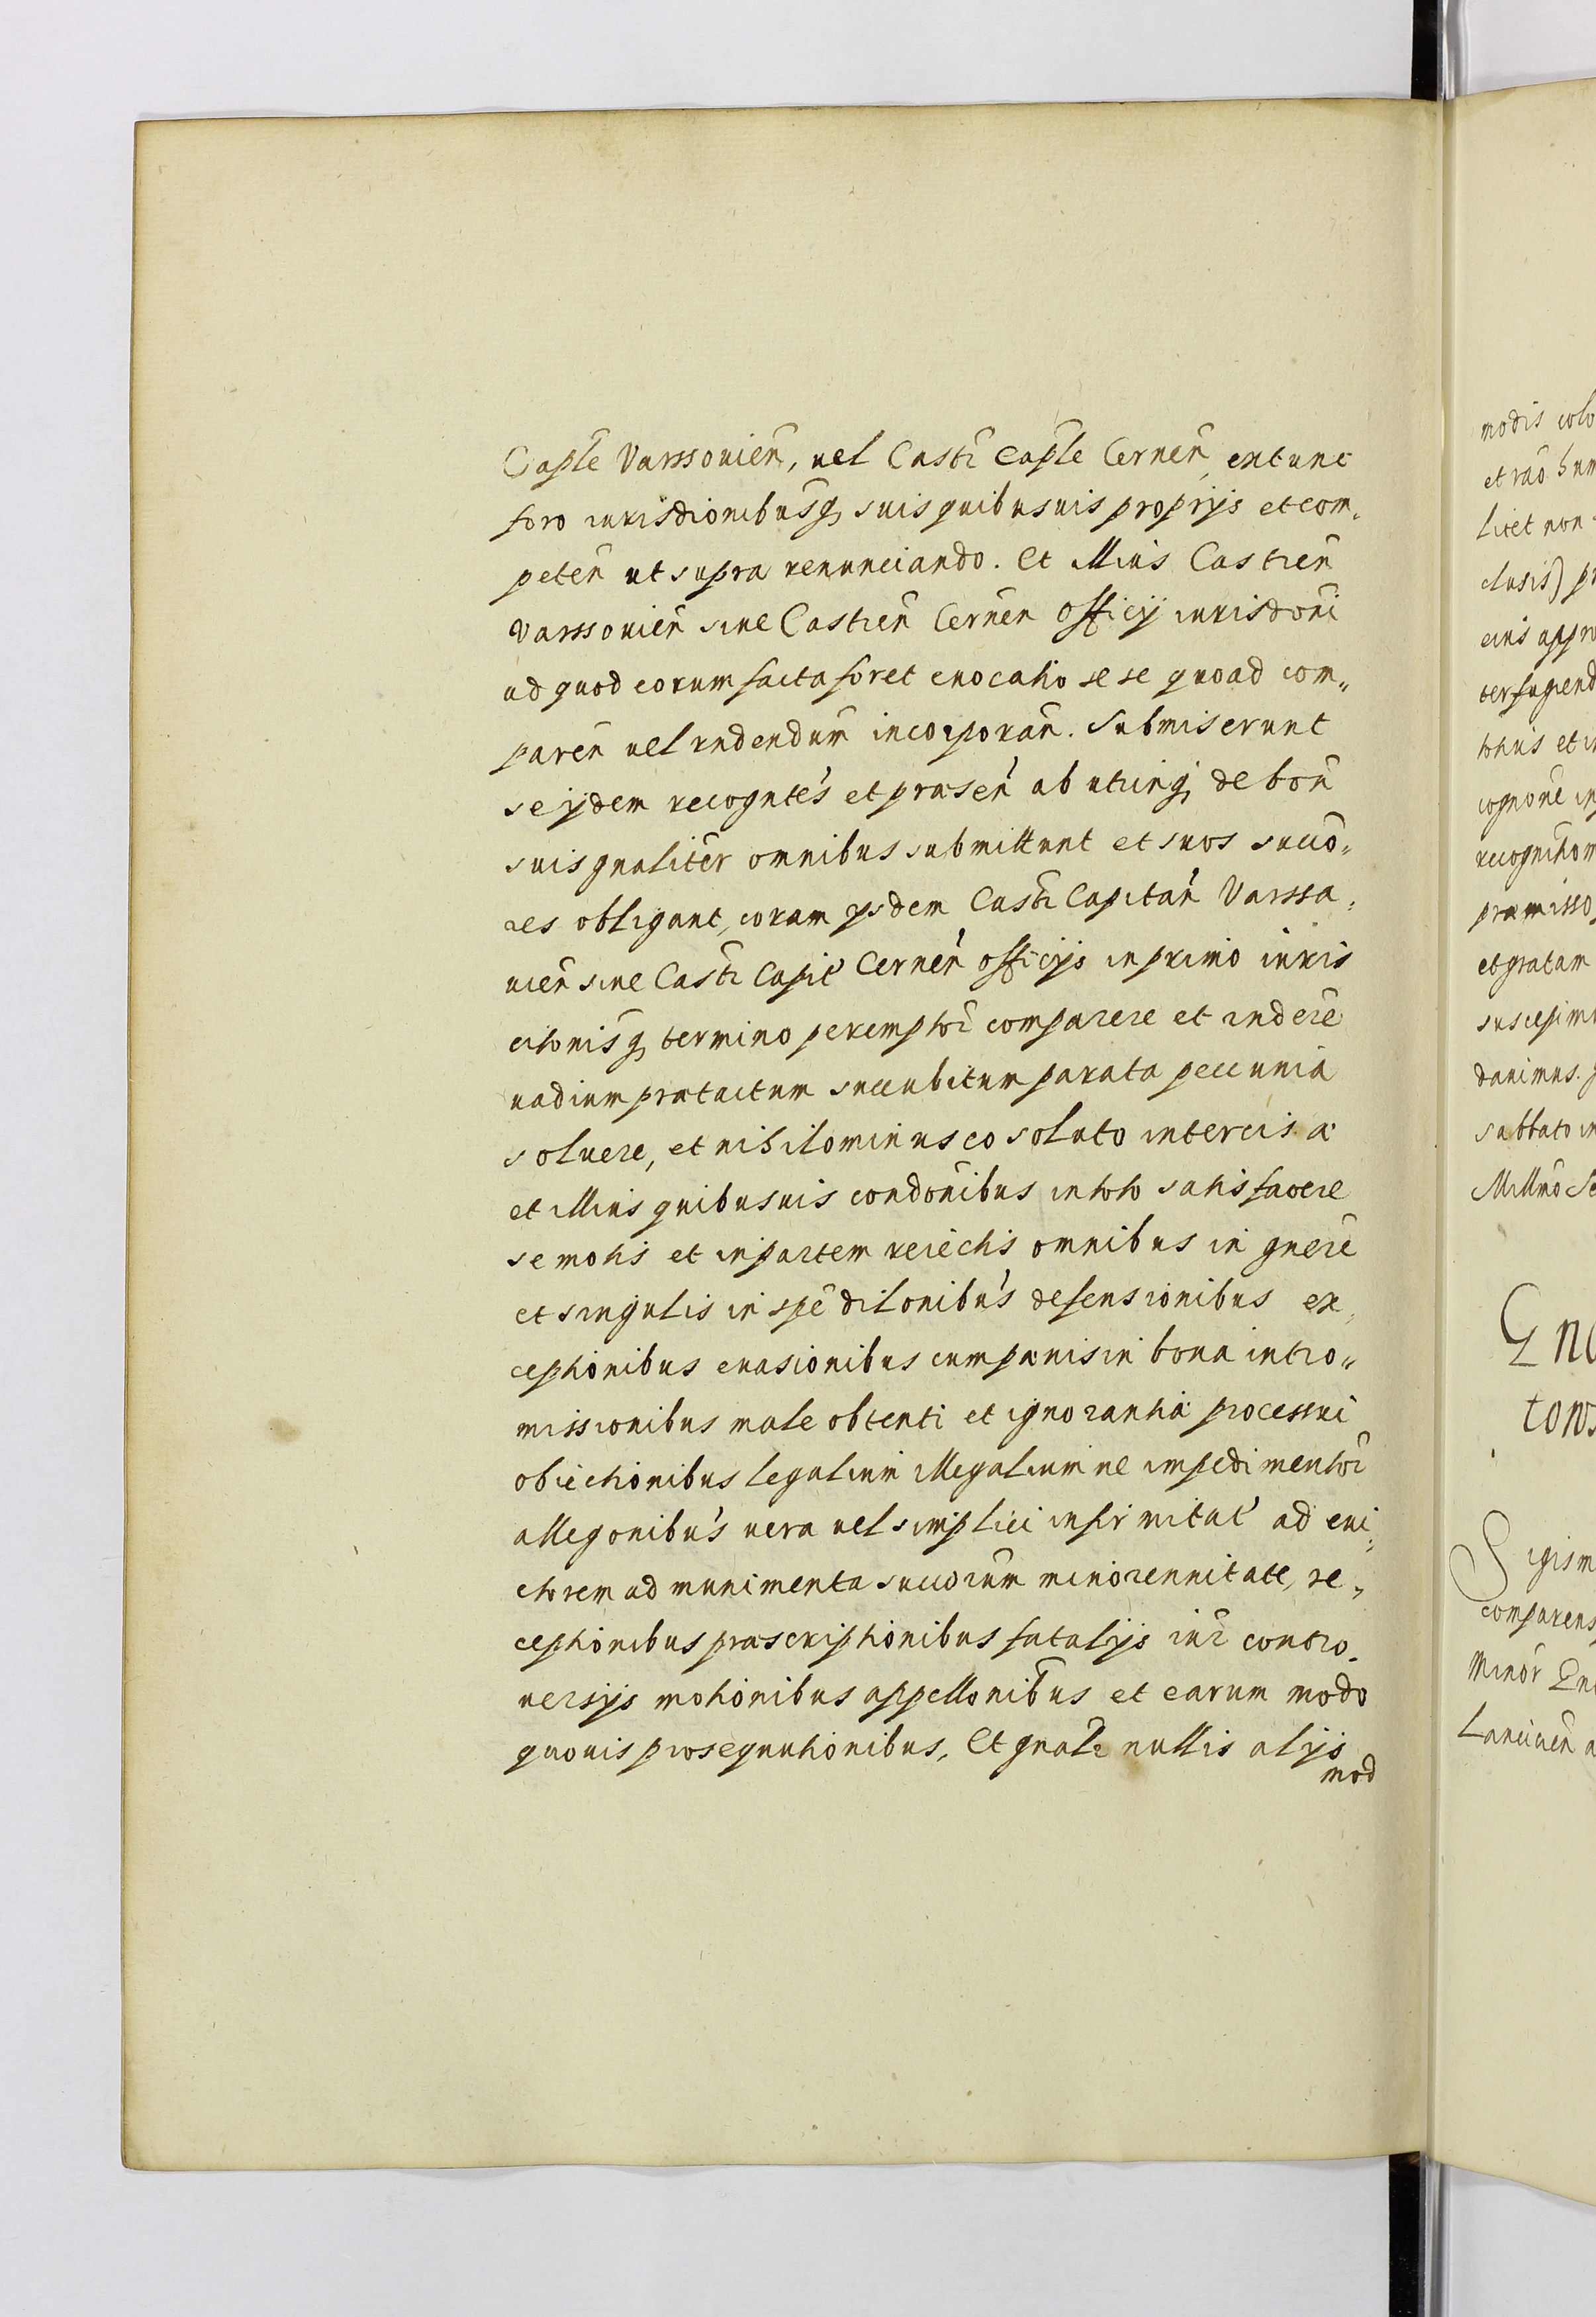 Caple Varssouien, uel Castr Caple Cernen extunc
foro iurisdionibusq suis quibusuis proprijs et com„
peten ut supra renunciando. Et illius Castren
Varssouien siue Castren Cernen Officij iurisdoni
ad quod eorum facta foret euocatio se se quoad com„
paren uel rndendum incorporan. Submiserunt
se ijdem recogntes et præsen ab utrinq de bon
suis gnaliter omnibus submittunt et suos succo„
res obligant, coram ijsdem Castr Capitan Varssa„
uien siue Castr Capit Cernen officijs in primo iuris
citonisq termino peremptor comparere et rndere
uadium prætactum succubitum parata peccunia
soluere, et nihilominus eo soluto intercisa
et illius quibusuis condonibus in toto satisfacere
semotis et in partem reiectis omnibus in gnere
et singulis in spe dilonibus defensionibus ex„
ceptionibus euasionibus cum pænis in bona intro„
missionibus male obtenti et ignorantia processui
obiectionibus legalium illegaliumue impedimentor
allegonibus uera uel simplici infirmitat ad eui„
ctorem ad munimenta succorum minorennitate, re„
ceptionibus præscriptionibus fatalijs iur contro„
uersijs motionibus appellonibus et earum modo
quouis prosequutionibus, Et gnalr nullis alijs
mod
modis colo
et rao hum
licet non
clusis) pr
eius appro
terfugiend
totius et in
cognone in
recognitiom
præmisso
et gratam
suscepimu
dauimus.
sabbato in
Millmo Se
Gn
tons
Sigism
comparens
Minor Gn
Lanciuen a